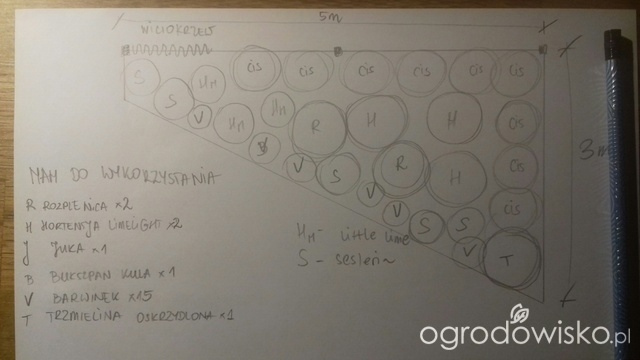 5m
WICIOKRZEW
S HM cis cis cis cis cis cis
S V HM HM R H H cis
B V S V R H cis
V S S cis
V T
3m
MAM DO WYKORZYSTANIA
R ROZPLENICA x2
H HORTENSJA LIMELIGHT x2
J JUKA x1
B BUKSZPAN KULA x1
V BARWINEK x15
T TRZMIELINA OSKRZYDLONA x1
HM - Little lime
S - sesleria
ogrodowisko.pl